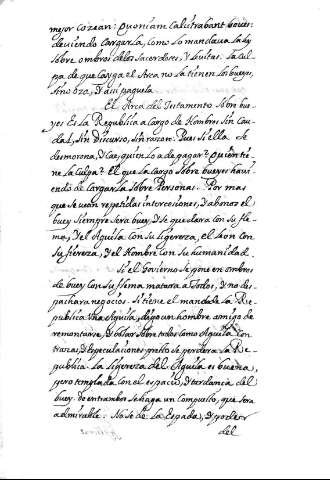 mejor cozean: Quoniam Calcitrabant boves.
deviendo Cargarla, como lo mandava la ley
sobre ombros de los sacerdotes, y Levitas. La cul
pa de que cayga el Arca no la tienen los bueyes,
sino oza, y assi pagvela.
El Arca del testamento sobre bue
yes Es la Republica a cargo de Hombres sin Cau
dal, sin Discurso, sin razon. Pues si ella se
desmorona, y cae, quien lo a de pagar? Quien tie
ne la culpa? El que la cargo sobre bueyes havi
endo de cargarla sobre Personas. Por mas
que se vean repetidas intercesiones, y abonos el
buey siempre sera buey, y se quedara con su fle
ma, y el Aguila con su ligereza, el Leon con
su fiereza, y el Hombre con su humanidad.
Si el Govierno se pone en ombros
de buey con su flema matara a todos, y no des
pachara negocios. Si tiene el mando de la Re
publica una Aguila, digo un hombre amigo de
remontarse, y bolar sobre todos como Aguila con
trazas, y Especulaciones presto se perdera la Re
publica. La ligereza del Aguila es buena,
pero templada con el espacio, y tardança del
buey. de entrambos se haga un compuesto, que sera
admirable. No se de la Espada, y poder
del